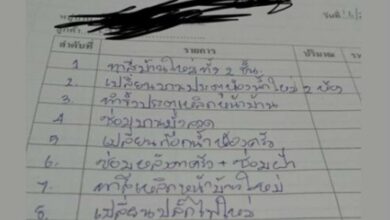 วันที่
ลูกค้า
ลำดับที่ รายการ ปริมาณ
1 ทาสีบ้านใหม่ทั้ง 2 ชั้น
2 เปลี่ยนบานประตูห้องน้ำใหม่ 2 ห้อง
3 ทำรั้วประตูเหล็กหน้าบ้าน
4 ซ่อมบานมุ้งลวด
5 เปลี่ยนก๊อกน้ำห้องครัว
6. ซ่อมหลังคาครัว + ซ่อมฝ้า
7. ทาสีเหล็กหน้าบ้านใหม่
8. เปลี่ยนปลั๊กไฟใหม่